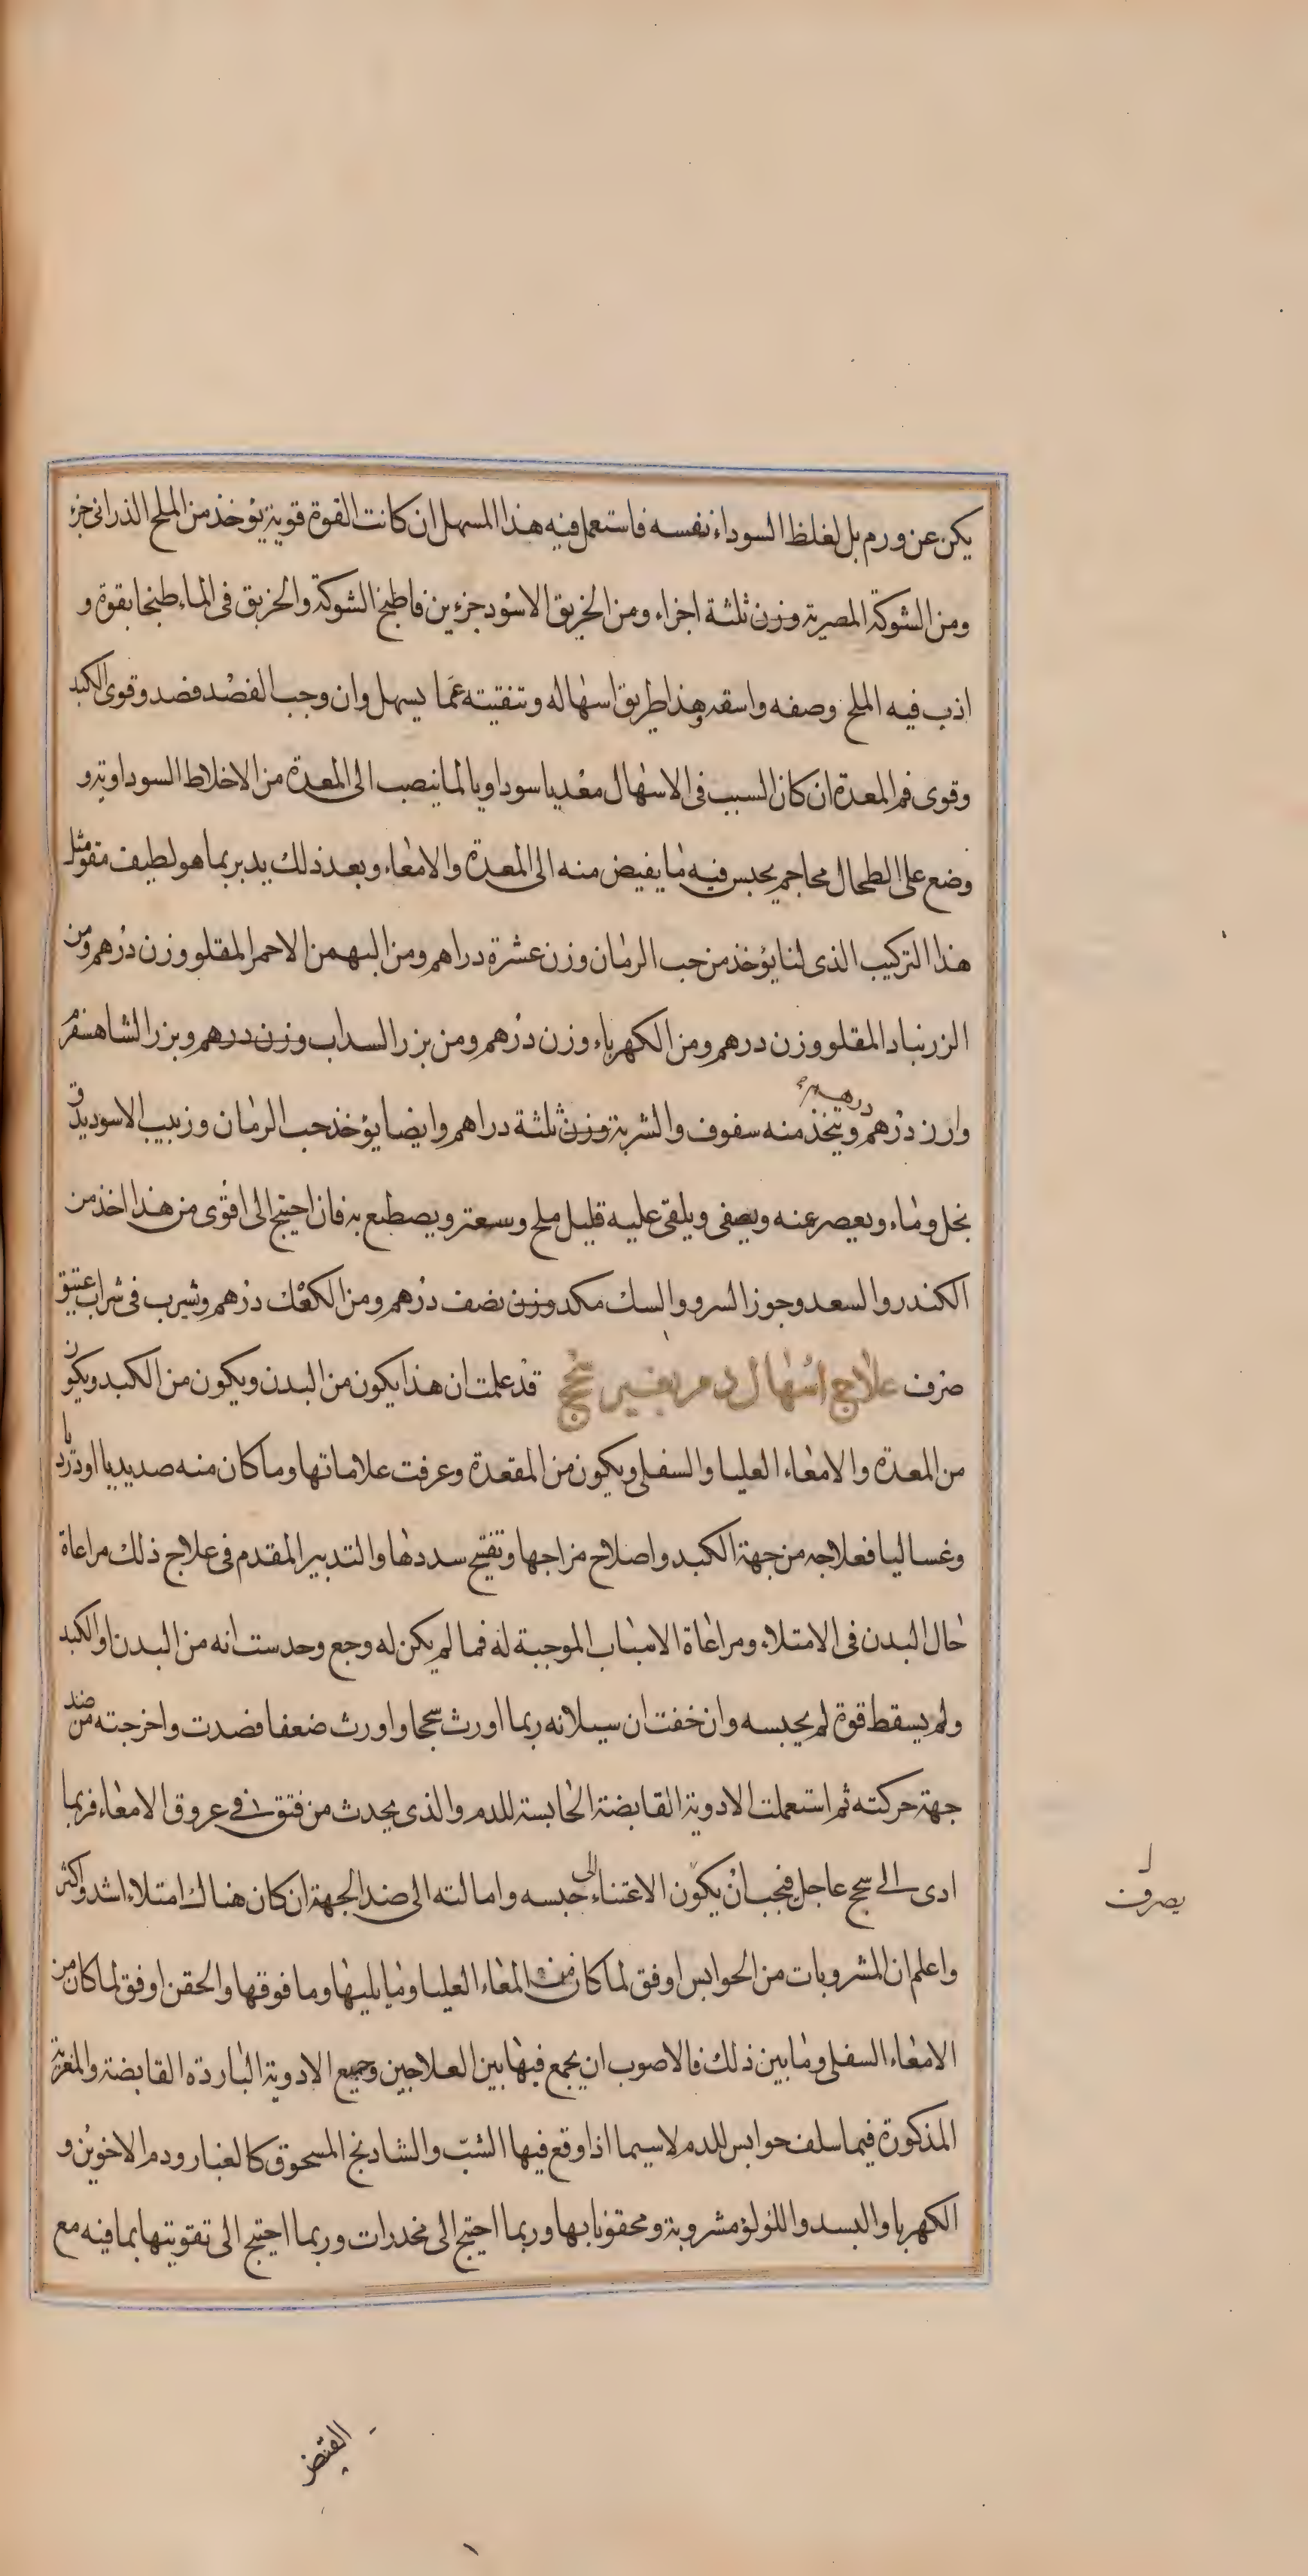 يكن عن ورم بل لغلظ السوداء نفسه فاستعمل فيه هذا المسهل ان كانت القوة قوية يؤخذ من الملح الذرانى جزء
ومن الشوكة المصرية وزن ثلثة اجزاء ومن الخربق الاسود جزءين فاطبخ الشوكة والخربق فى الماء طبخا بقوة و
اذب فيه الملح وصفه واسقه وهذا طريق اسهاله وتنقيته عما يسهل وان وجب الفصد فصد وقوى الكبد
وقوى فم المعدة ان كان السبب فى الاسهال معديا سوداويا لما ينصب الى المعدة من الاخلاط السوداوية و
وضع على الطحال محاجم يحبس فيه ما يفيض منه الى المعدة والامعاء وبعد ذلك يدبر بما هو لطيف مقو مثل
هذا التركيب الذى لنا يؤخذ من حب الرمان وزن عشرة دراهم ومن البهمن الاحمر المقلو وزن درهم ومن
الزرنباد المقلو وزن درهم ومن الكهرباء وزن درهم ومن بزر السداب وزن درهم وبزر الشاهسفرم
وارن درهم ويتخذ منه سفوف والشربة وزن ثلثة دراهم وايضا يؤخذ حب الرمان وزبيب الاسود يدق
درهم
بخل وماء ويعصر عنه ويصفى ويلقى عليه قليل ملح وسعتر ويصطبع به فان احتيج الى اقوى من هذا اخذ من
الكندر والسعد وجوز السرو والسك مكد وزن نصف درهم ومن الكعك درهم وشرب فى شراب عتيق
صرف علاج اسهال دم بغير سحج قد علمت ان هذا يكون من البدن ويكون من الكبد ويكون
من المعدة والامعاء العليا والسفلى ويكون من المقعدة وعرفت علاماتها وما كان منه صديديا او درديا
وغساليا فعلاجه من جهة الكبد واصلاح مزاجها وتفتيح سددها والتدبير المقدم فى علاج ذلك مراعاة
حال البدن فى الامتلاء ومراعاة الاسباب الموجبة له فما لم يكن له وجع وحدست انه من البدن او الكبد
ولم يسقط قوة لم يحبسه وان خفت ان سيلانه ربما اورث سحجا واورث ضعفا فصدت واخرجته من ضد
جهة حركته ثم استعملت الادوية القابضة الحابسة للدم والذى يحدث من فتق فى عروق الامعاء فربما
ادى الى سحج عاجل فيجب ان يكون الاعتناء الى حبسه وامالته الى ضد الجهة ان كان هناك امتلاء اشد واكثر
يصرف
واعلم ان المشروبات من الحوابس اوفق لما كان من المعاء العليا وما يليها وما فوقها والحقن اوفق لما كان من
الامعاء السفلى وما بين ذلك فالاصوب ان يجمع فيها بين العلاجين وجميع الادوية الباردة القابضة والمغرية
المذكورة فيما سلف حوابس للدم لاسيما اذا وقع فيها الشب والشادنج المسحوق كالغبار ودم الاخوين و
الكهربا والبسد واللولؤ مشروبة ومحقونا بها وربما احتيج الى مخدرات وربما احتيج الى تقويتها بما فيه مع
القبض